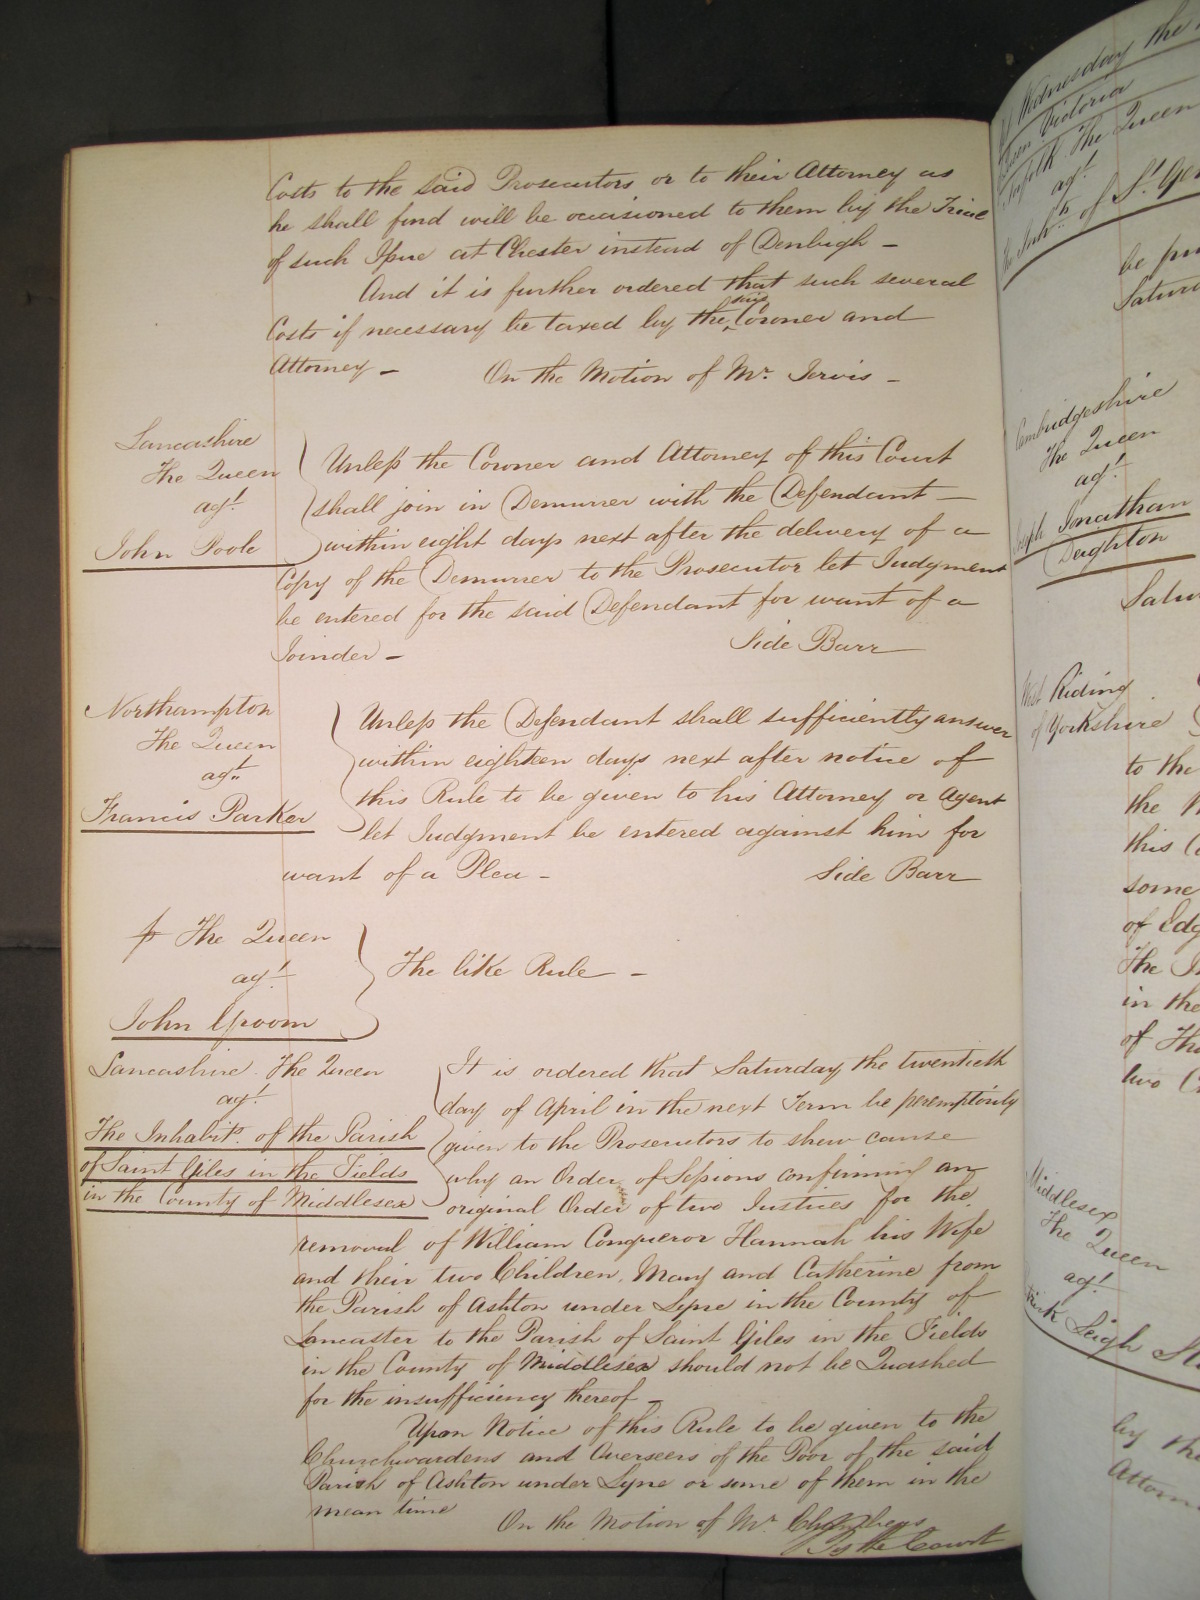 Costs to the said Prosecutors or to their Attorney as
he shall find will be occasioned to them by the Trial
of such Issue at Chester instead of Denbigh –
And it is further ordered that such several
Costs if necessary be taxed by the said Coroner and
Attorney – On the Motion of Mr. Jervis –
Lancashire
The Queen
agt.
John Poole
Unless the Coroner and Attorney of this Court
shall join in Demurrer with the Defendant –
within eight days next after the delivery of a
Copy of the Demurrer to the Prosecutor let Judgment
be entered for the said Defendant for want of a
Joinder – Side Barr
Northampton
The Queen
agt.
Francis Parker
Unless the Defendant shall sufficiently answer
within eighteen days next after notice of
this Rule to be given to his Attorney or Agent
let Judgment be entered against him for
want of a Plea – Side Barr
The Queen
agt.
John Groom
The like Rule –
Lancashire The Queen
agt.
The Inhabits. of the Parish
of Saint Giles in the Fields
in the County of Middlesex
It is ordered that Saturday the twentieth
day of April in the next Term be peremptorily
given to the Prosecutors to shew cause
why an Order of Sessions confirming an
original Order of two Justices for the
removal of William Conqueror Hannah his Wife
and their two Children, Mary and Catherine from
the Parish of Ashton under Lyne in the County of
Lancaster to the Parish of Saint Giles in the Fields
in the County of Middlesex should not be Quashed
for the insufficiency thereof –
Upon Notice of this Rule to be given to the
Churchwardens and Overseers of the Poor of the said
Parish of Ashton under Lyne or some of them in the
mean time On the Motion of Mr. Chambers
By the Court
Wednesday the
Victoria
The Queen
agt.
of St.
be
Cambridgeshire
The Queen
agt.
Jonathan
Deighton
West Riding
of Yorkshire
to the
the
this
some
of
The
in the
of
two
Middlesex
The Queen
agt.
Leigh
by the